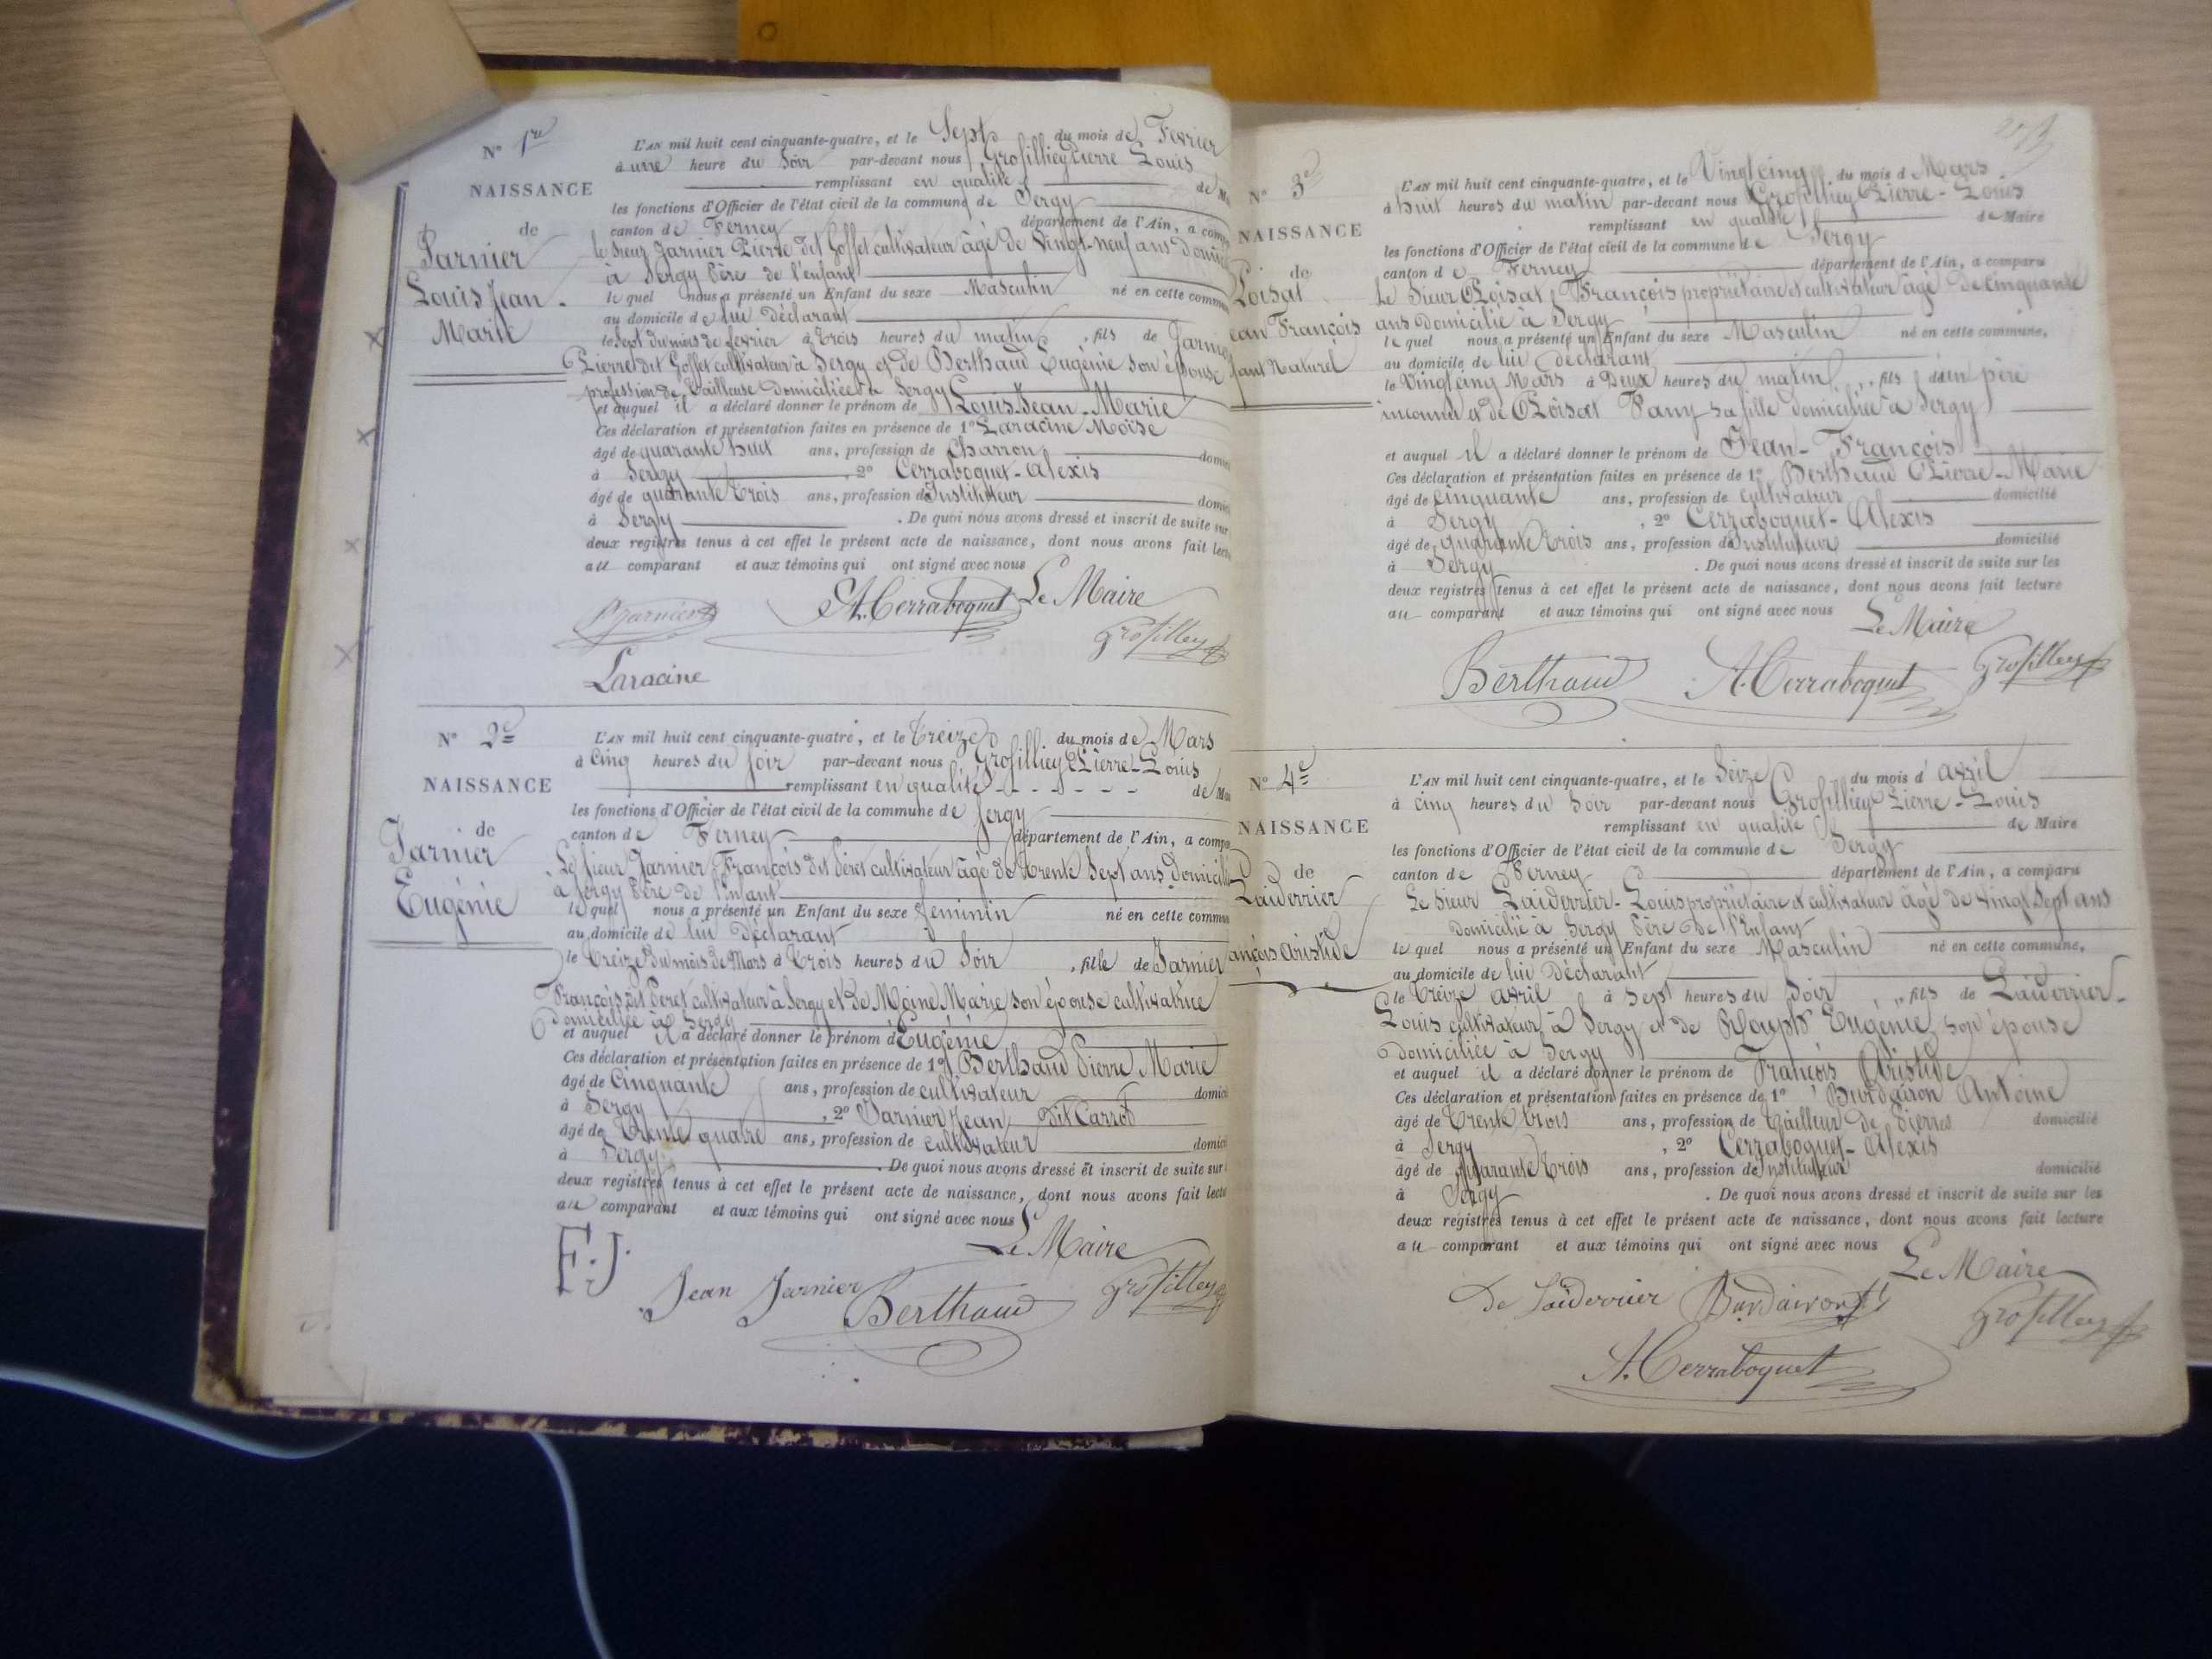 N° 1re
NAISSANCE
de
Jarnier
Louis Jean
Marie
L'AN mil huit cent cinquante-quatre, et le Sept du mois de Fevrier
à une heure du Soir par-devant nous Grosfilliey Pierre Louis
remplissant en qualité de
les fonctions d'Officier de l'état civil de la commune de Sergy
canton de Ferney département de l'Ain, a
le Sieur Jarnier Pierre dit Goffet cultivateur âgé de Vingt-neuf ans
à Sergy Père de l'enfant
le quel nous a présenté un Enfant du sexe Masculin né en cette
au domicile de lui déclarant
le Sept du mois de fevrier à trois heures du matin, fils de
Pierre dit Goffet cultivateur à Sergy et de Berthaud Eugénie son épouse
profession de tailleuse domiciliée à Sergy
et auquel il a déclaré donner le prénom de Louis Jean-Marie
Ces déclaration et présentation faites en présence de 1° Laracine Moïse
âgé de quarante huit ans, profession de Charron
à Sergy, 2° Cerraboquet-Alexis
âgé de quarante trois ans, profession d'Instituteur
à Sergy. De quoi nous avons dressé et inscrit de suite sur
deux registres tenus à cet effet le présent acte de naissance, dont nous avons fait
au comparant et aux témoins qui ont signé avec nous
Le Maire
P Jarnier A. Cerraboquet Grosfilley
Laracine
N° 2e
NAISSANCE
de
Jarnier
Eugénie
L'AN mil huit cent cinquante-quatre, et le Treize du mois de Mars
à Cinq heures du soir par-devant nous Grosfilliey Pierre-Louis
remplissant en qualité de
les fonctions d'Officier de l'état civil de la commune de Sergy
canton de Ferney département de l'Ain, a
Le sieur Jarnier François dit Peret cultivateur âgé de trente Sept ans
à Sergy Père de l'Enfant
le quel nous a présenté un Enfant du sexe feminin né en cette
au domicile de lui déclarant
le treize du mois de Mars à trois heures du Soir, fille de Jarnier
François dit Peret cultivateur à Sergy et de Moine Marie son épouse cultivatrice
domiciliée à Sergy
et auquel il a déclaré donner le prénom d'Eugénie
Ces déclaration et présentation faites en présence de 1° Berthaud Pierre Marie
âgé de Cinquante ans, profession de cultivateur
à Sergy, 2° Jarnier Jean dit Carrod
âgé de trente quatre ans, profession de cultivateur
à Sergy. De quoi nous avons dressé et inscrit de suite sur
deux registres tenus à cet effet le présent acte de naissance, dont nous avons fait
au comparant et aux témoins qui ont signé avec nous
Le Maire
F. J. Jean Jarnier Berthaud Grosfilley
N° 3e
NAISSANCE
de
Loisat
ean François
fant Naturel
L'AN mil huit cent cinquante-quatre, et le Vingt cinq du mois d Mars
à huit heures du matin par-devant nous Grosfilliey Pierre-Louis
remplissant en qualité de Maire
les fonctions d'Officier de l'état civil de la commune de Sergy
canton de Ferney département de l'Ain, a comparu
Le Sieur Ploisat François propriétaire et cultivateur âgé de Cinquante
ans domicilié à Sergy
le quel nous a présenté un Enfant du sexe Masculin né en cette commune,
au domicile de lui déclarant
le Vingt cinq Mars à Deux heures du matin, fils d'un père
inconnu et de Ploisat Fany sa fille domiciliée à Sergy
et auquel il a déclaré donner le prénom de Jean-François
Ces déclaration et présentation faites en présence de 1° Berthaud Pierre-Marie
âgé de cinquante ans, profession de cultivateur domicilié
à Sergy, 2° Cerraboquet-Alexis
âgé de quarante trois ans, profession d'Instituteur domicilié
à Sergy. De quoi nous avons dressé et inscrit de suite sur les
deux registres tenus à cet effet le présent acte de naissance, dont nous avons fait lecture
au comparant et aux témoins qui ont signé avec nous
Le Maire
Berthaud A. Cerraboquet Grosfilley
N° 4e
NAISSANCE
de
Laiderrier
ançois Aristide
L'AN mil huit cent cinquante-quatre, et le Seize du mois d'avril
à cinq heures du Soir par-devant nous Grosfilliey Pierre-Louis
remplissant en qualité de Maire
les fonctions d'Officier de l'état civil de la commune de Sergy
canton de Ferney département de l'Ain, a comparu
Le Sieur Laiderrier-Louis propriétaire et cultivateur âgé de vingt Sept ans
domicilié à Sergy Père de l'Enfant
le quel nous a présenté un Enfant du sexe Masculin né en cette commune,
au domicile de lui déclarant
le treize avril à Sept heures du Soir, fils de Laiderrier-
Louis cultivateur à Sergy et de Eugénie son épouse
domiciliée à Sergy
et auquel il a déclaré donner le prénom de François Aristide
Ces déclaration et présentation faites en présence de 1° Burdairon Antoine
âgé de trente trois ans, profession de tailleur de Pierres domicilié
à Sergy, 2° Cerraboquet-Alexis
âgé de quarante trois ans, profession d'Instituteur domicilié
à Sergy. De quoi nous avons dressé et inscrit de suite sur les
deux registres tenus à cet effet le présent acte de naissance, dont nous avons fait lecture
au comparant et aux témoins qui ont signé avec nous
Le Maire
De Laiderrier Burdairon Grosfilley
A. Cerraboquet